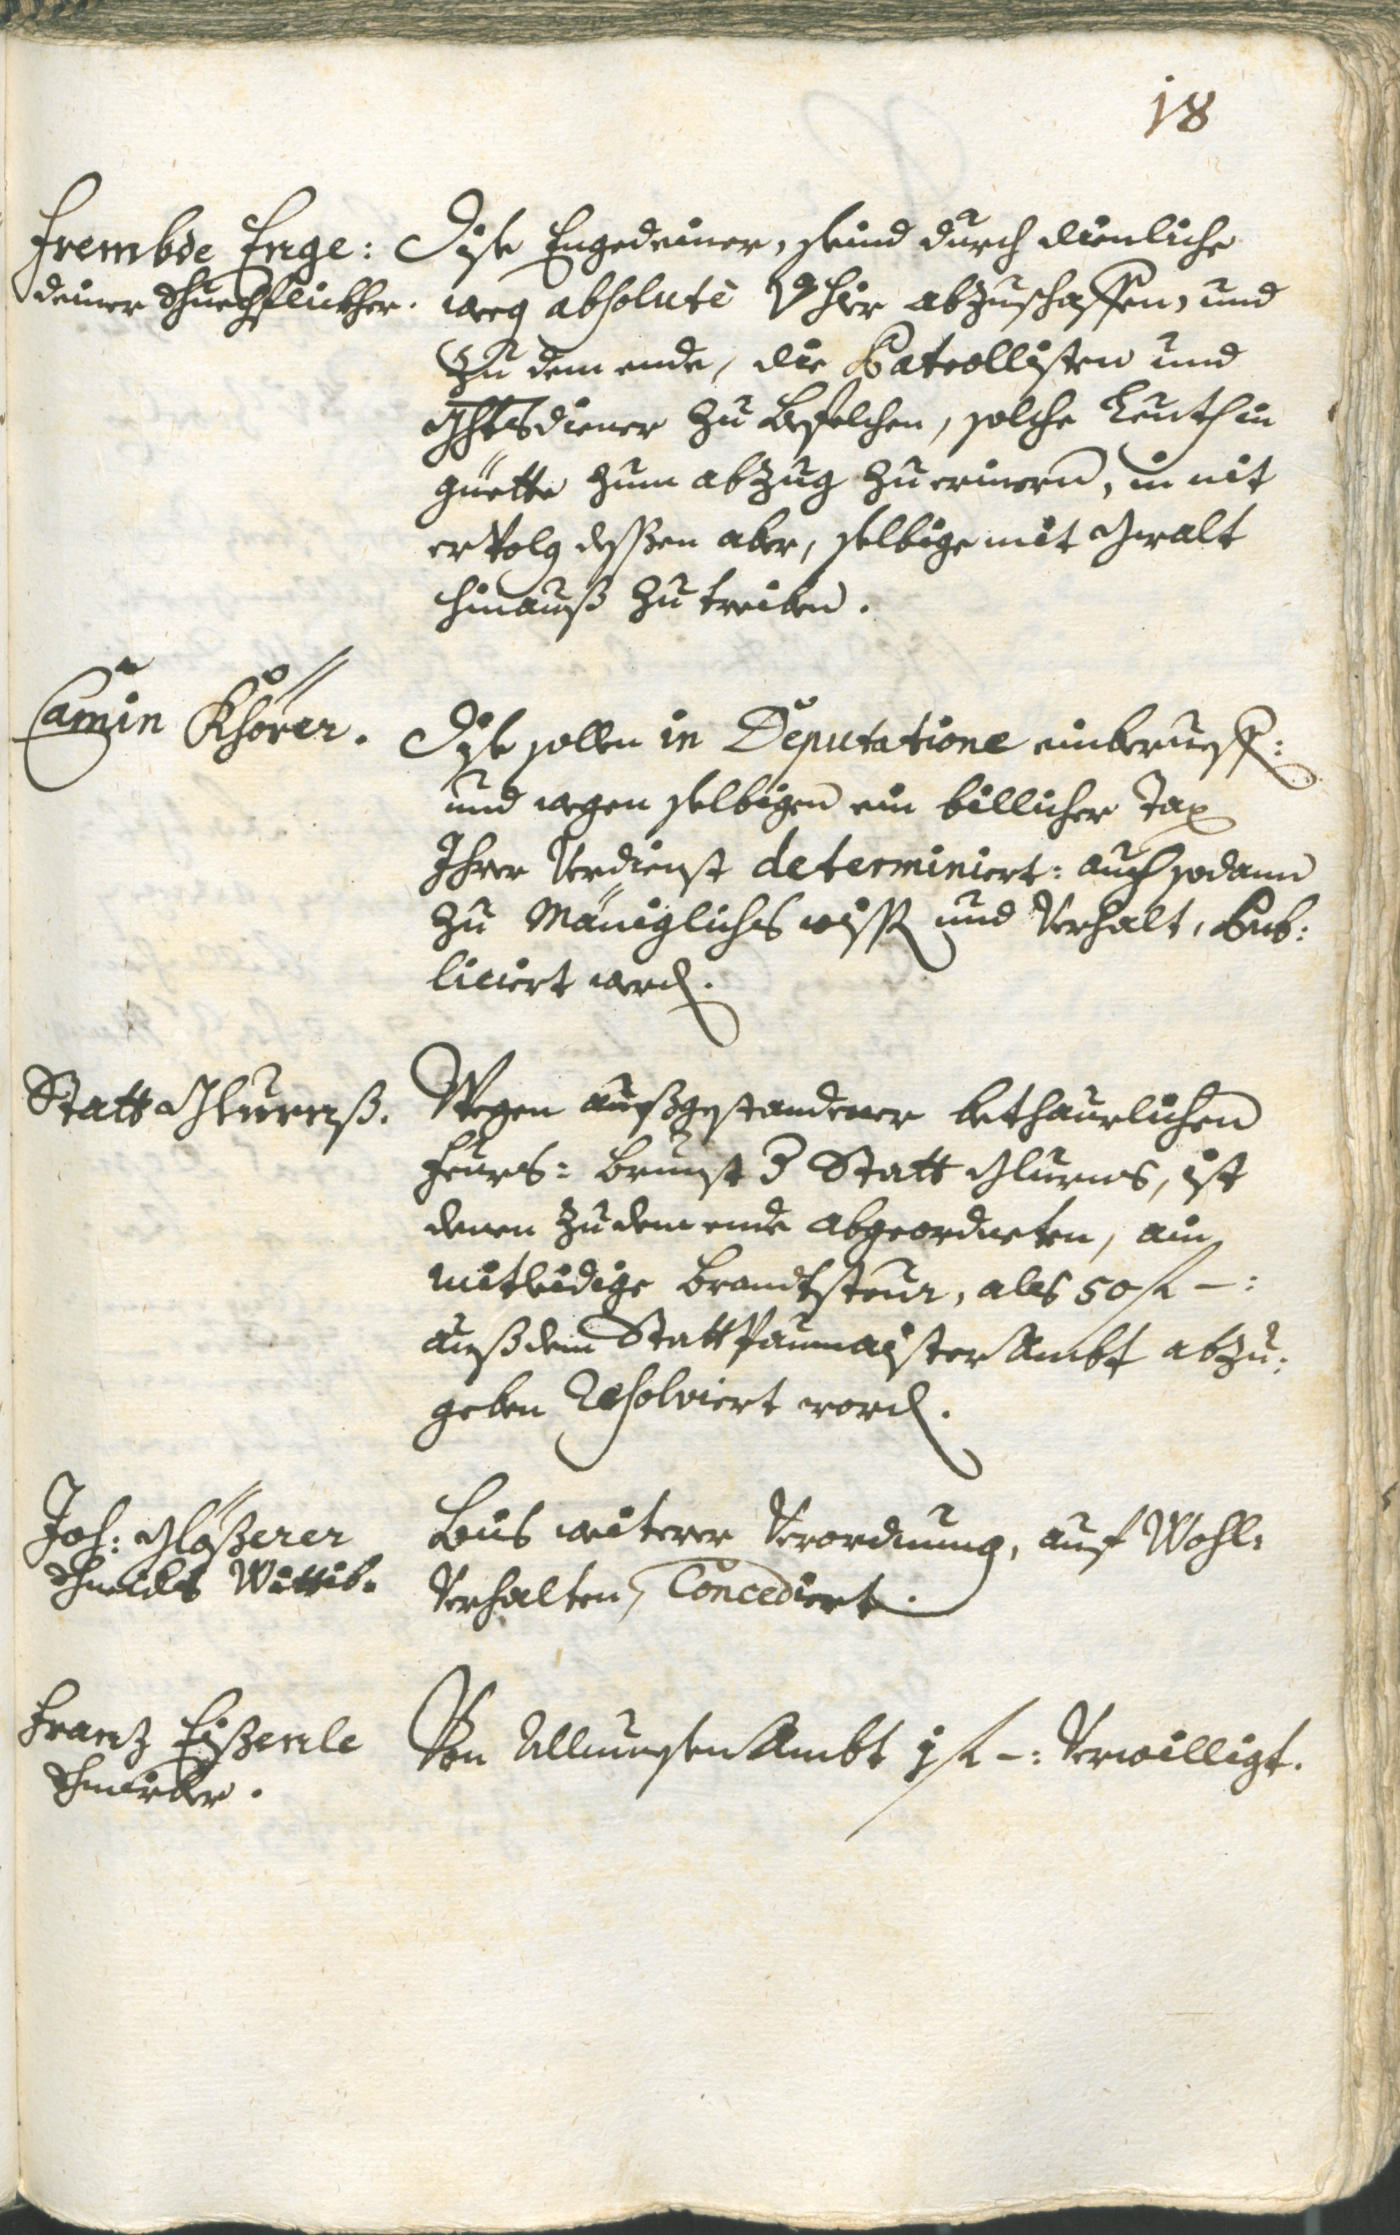 18
frembde Enge:
deiner Schuechflickher.
Dise Engedeiner, seind durch dienliche
weeg absolutè von hier abzuschaffen, und
zu dem ende, die Patrollisten und
Ghtsdiener zu befelchen, solche Leuth in
güette zum abzug zu erinern, in nit
ervolg dessen aber, selbige mit Gwalt
hinauß zu treiben.
Camin Khörer.
Dise sollen in Deputatione einberueff:
und wegen selbigen ein billicher Tax
Ihrer Verdienst determiniert: auch sodann
zu Mäniglichs wiss und Verhalt, Pub:
liciert werd.
Statt Glurnß.
Wegen außgestandener bethaurlichen
feurs: brunst der Statt Glurns, ist
denen zu dem ende abgeordneten, ain
mitleidige brandtsteur, als 50 f –:
auß dem Statt Paumaister Ambt abzu:
geben Resolviert word.
Joh: Gläßerer
Schneiders Wittib.
Bis weiterer Verordnung, auf Wohl:
Verhalten, Concediert.
Franz Eißenle
Von Allmuesen Ambt 1 f –: Verwilligt.